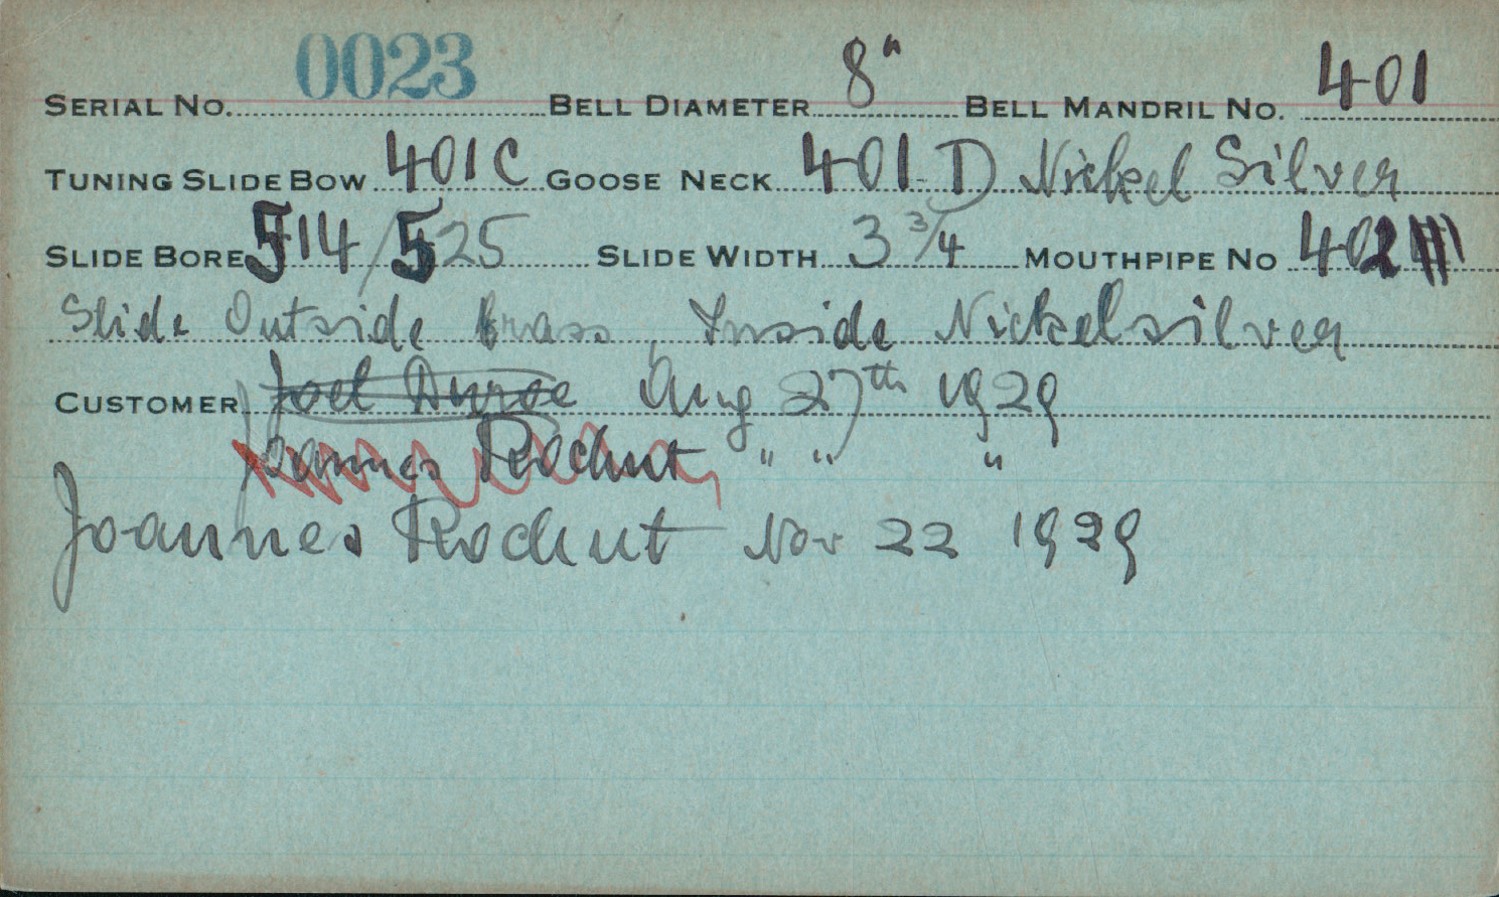 SERIAL NO. 0023 BELL DIAMETER 8" BELL MANDRIL NO. 401
TUNING SLIDE BOW 401C GOOSE NECK 401-D Nickel Silver
SLIDE BORE 514/525 SLIDE WIDTH 3 3/4 MOUTHPIPE NO 402
Slide Outside brass, Inside Nickelsilver
CUSTOMER Joel Aug 27th 1929
Joannes Rochut " " "
Joannes Rochut Nov 22 1929